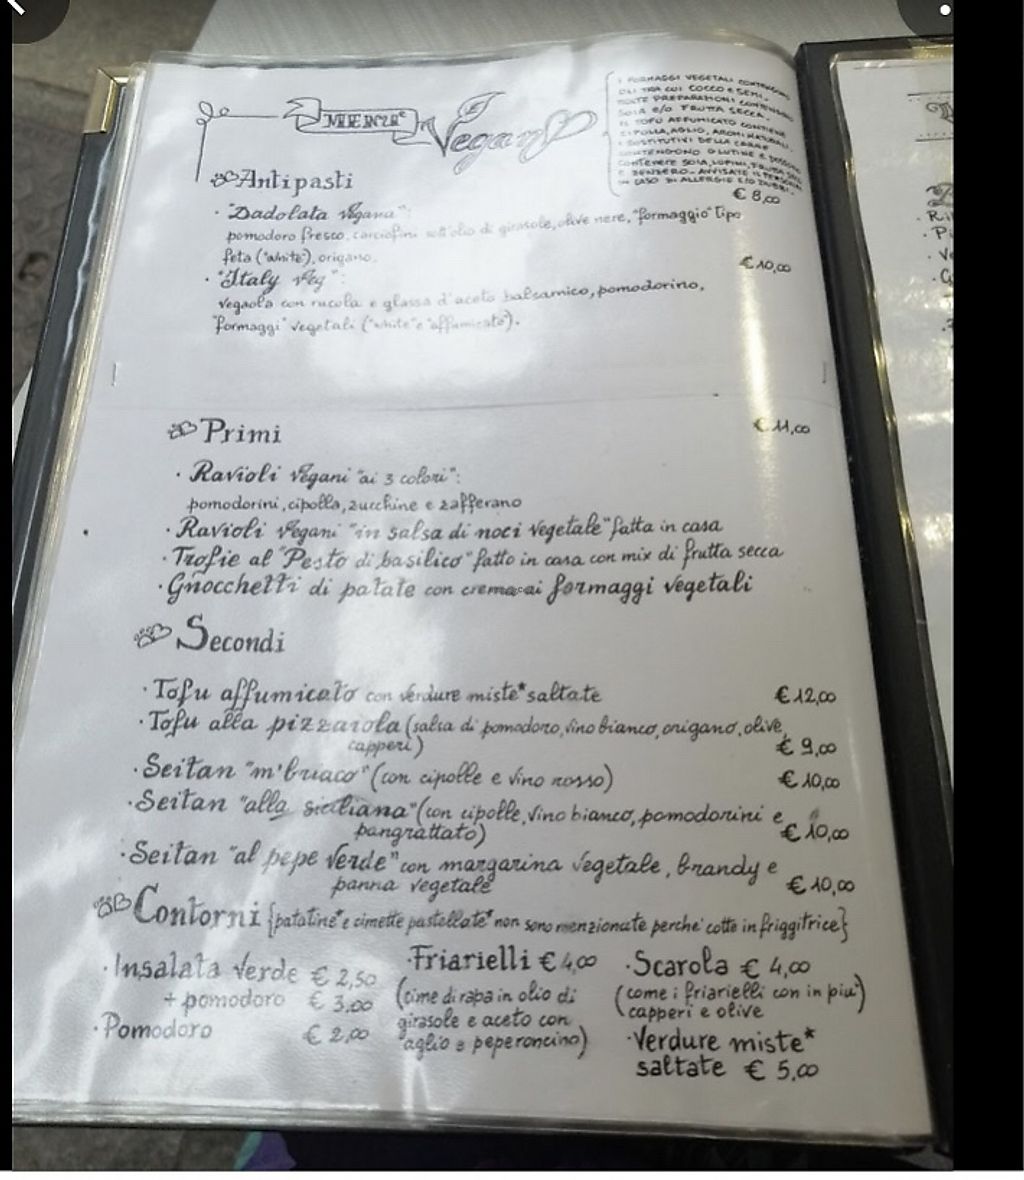 MENU' Vegan
I FORMAGGI VEGETALI CONTENGONO
OLI TRA CUI COCCO E SEMI.
MOLTE PREPARAZIONI CONTENGONO
SOIA E/O FRUTTA SECCA.
IL TOFU AFFUMICATO CONTIENE
CIPOLLA, AGLIO, AROMI NATURALI.
I SOSTITUTIVI DELLA CARNE
CONTENGONO GLUTINE E POSSONO
CONTENERE SOIA, LUPINI, FRUTTA SECCA
E SENZERO. AVVISATE IL PERSONALE
IN CASO DI ALLERGIE E/O DUBBI.
Antipasti
€ 8,00
· "Dadolata Vegana":
pomodoro fresco, carciofini sott'olio di girasole, olive nere, "formaggio" tipo
feta ("white"), origano.
€ 10,00
· "Italy Veg":
con rucola e glassa d'aceto balsamico, pomodorino,
"formaggi" vegetali ("white" e "affumicato").
Primi
€ 11,00
· Ravioli Vegani "ai 3 colori":
pomodorini, cipolla, zucchine e zafferano
· Ravioli Vegani "in salsa di noci vegetale" fatta in casa
· Trofie al "Pesto di basilico" fatto in casa con mix di frutta secca
· Gnocchetti di patate con crema ai formaggi vegetali
Secondi
· Tofu affumicato con verdure miste* saltate € 12,00
· Tofu alla pizzaiola (salsa di pomodoro, vino bianco, origano, olive,
capperi) € 9,00
· Seitan "m'briaco" (con cipolle e vino rosso) € 10,00
· Seitan "alla siciliana" (con cipolle, vino bianco, pomodorini e
pangrattato) € 10,00
· Seitan "al pepe Verde" con margarina vegetale, brandy e
panna vegetale € 10,00
Contorni {patatine* e cimette pastellate* non sono menzionate perchè cotte in friggitrice}
· Insalata Verde € 2,50
+ pomodoro € 3,00
· Pomodoro € 2,00
· Friarielli € 4,00
(cime di rapa in olio di
girasole e aceto con
aglio e peperoncino)
· Scarola € 4,00
(come i friarielli con in più
capperi e olive)
· Verdure miste*
saltate € 5,00